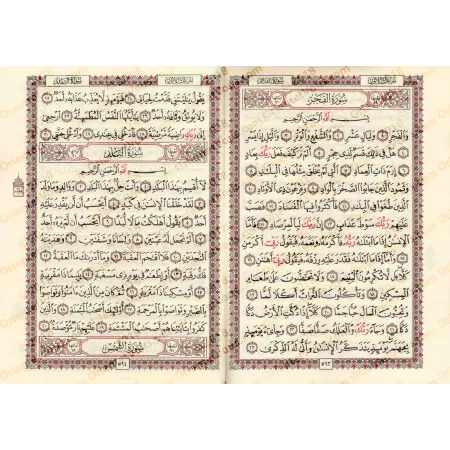 سورة الفجر
بِسْمِ اللَّهِ الرَّحْمَٰنِ الرَّحِيمِ
وَالْفَجْرِ ١ وَلَيَالٍ عَشْرٍ ٢ وَالشَّفْعِ وَالْوَتْرِ ٣ وَاللَّيْلِ إِذَا يَسْرِ
٤ هَلْ فِي ذَٰلِكَ قَسَمٌ لِّذِي حِجْرٍ ٥ أَلَمْ تَرَ كَيْفَ فَعَلَ رَبُّكَ بِعَادٍ
٦ إِرَمَ ذَاتِ الْعِمَادِ ٧ الَّتِي لَمْ يُخْلَقْ مِثْلُهَا فِي الْبِلَادِ ٨
وَثَمُودَ الَّذِينَ جَابُوا الصَّخْرَ بِالْوَادِ ٩ وَفِرْعَوْنَ ذِي الْأَوْتَادِ ١٠
الَّذِينَ طَغَوْا فِي الْبِلَادِ ١١ فَأَكْثَرُوا فِيهَا الْفَسَادَ ١٢ فَصَبَّ
عَلَيْهِمْ رَبُّكَ سَوْطَ عَذَابٍ ١٣ إِنَّ رَبَّكَ لَبِالْمِرْصَادِ ١٤ فَأَمَّا
الْإِنسَانُ إِذَا مَا ابْتَلَاهُ رَبُّهُ فَأَكْرَمَهُ وَنَعَّمَهُ فَيَقُولُ رَبِّي أَكْرَمَنِ
١٥ وَأَمَّا إِذَا مَا ابْتَلَاهُ فَقَدَرَ عَلَيْهِ رِزْقَهُ فَيَقُولُ رَبِّي أَهَانَنِ
١٦ كَلَّا بَل لَّا تُكْرِمُونَ الْيَتِيمَ ١٧ وَلَا تَحَاضُّونَ عَلَىٰ طَعَامِ
الْمِسْكِينِ ١٨ وَتَأْكُلُونَ التُّرَاثَ أَكْلًا لَّمًّا
١٩ وَتُحِبُّونَ الْمَالَ حُبًّا جَمًّا ٢٠ كَلَّا إِذَا دُكَّتِ الْأَرْضُ دَكًّا
دَكًّا ٢١ وَجَاءَ رَبُّكَ وَالْمَلَكُ صَفًّا صَفًّا ٢٢ وَجِيءَ يَوْمَئِذٍ
بِجَهَنَّمَ يَوْمَئِذٍ يَتَذَكَّرُ الْإِنسَانُ وَأَنَّىٰ لَهُ الذِّكْرَىٰ ٢٣
٥٩٣
يَقُولُ يَا لَيْتَنِي قَدَّمْتُ لِحَيَاتِي ٢٤ فَيَوْمَئِذٍ لَّا يُعَذِّبُ عَذَابَهُ أَحَدٌ ٢٥
وَلَا يُوثِقُ وَثَاقَهُ أَحَدٌ ٢٦ يَا أَيَّتُهَا النَّفْسُ الْمُطْمَئِنَّةُ ٢٧ ارْجِعِي
إِلَىٰ رَبِّكِ رَاضِيَةً مَّرْضِيَّةً ٢٨ فَادْخُلِي فِي عِبَادِي ٢٩ وَادْخُلِي جَنَّتِي ٣٠
سورة البلد
بِسْمِ اللَّهِ الرَّحْمَٰنِ الرَّحِيمِ
لَا أُقْسِمُ بِهَٰذَا الْبَلَدِ ١ وَأَنتَ حِلٌّ بِهَٰذَا الْبَلَدِ ٢ وَوَالِدٍ وَمَا وَلَدَ
٣ لَقَدْ خَلَقْنَا الْإِنسَانَ فِي كَبَدٍ ٤ أَيَحْسَبُ أَن لَّن يَقْدِرَ عَلَيْهِ
أَحَدٌ ٥ يَقُولُ أَهْلَكْتُ مَالًا لُّبَدًا ٦ أَيَحْسَبُ أَن لَّمْ يَرَهُ أَحَدٌ
٧ أَلَمْ نَجْعَل لَّهُ عَيْنَيْنِ ٨ وَلِسَانًا وَشَفَتَيْنِ ٩ وَهَدَيْنَاهُ
النَّجْدَيْنِ ١٠ فَلَا اقْتَحَمَ الْعَقَبَةَ ١١ وَمَا أَدْرَاكَ مَا الْعَقَبَةُ ١٢
فَكُّ رَقَبَةٍ ١٣ أَوْ إِطْعَامٌ فِي يَوْمٍ ذِي مَسْغَبَةٍ ١٤ يَتِيمًا ذَا مَقْرَبَةٍ
١٥ أَوْ مِسْكِينًا ذَا مَتْرَبَةٍ ١٦ ثُمَّ كَانَ مِنَ الَّذِينَ آمَنُوا وَتَوَاصَوْا
بِالصَّبْرِ وَتَوَاصَوْا بِالْمَرْحَمَةِ ١٧ أُولَٰئِكَ أَصْحَابُ الْمَيْمَنَةِ ١٨ وَالَّذِينَ
كَفَرُوا بِآيَاتِنَا هُمْ أَصْحَابُ الْمَشْأَمَةِ ١٩ عَلَيْهِمْ نَارٌ مُّؤْصَدَةٌ ٢٠
سورة الشمس
٥٩٤